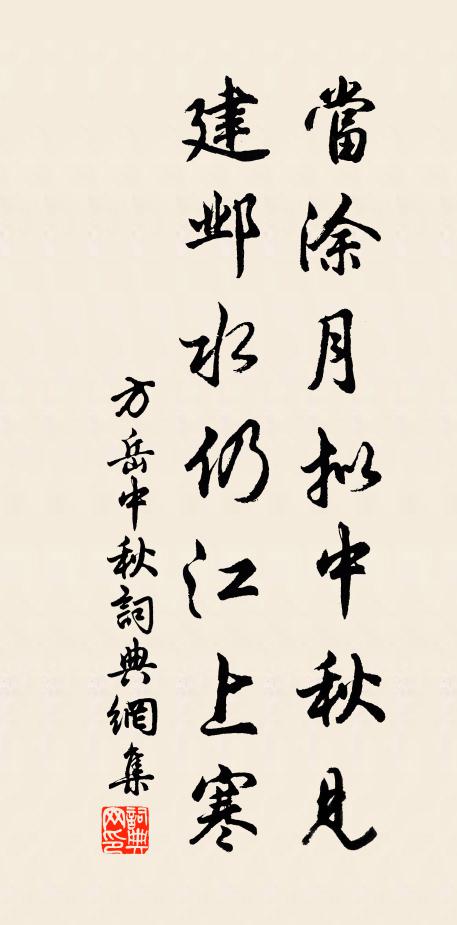 當涂月拟中秋見
建邺水仍江上寒
方岳中秋詞典網集
詞典網印